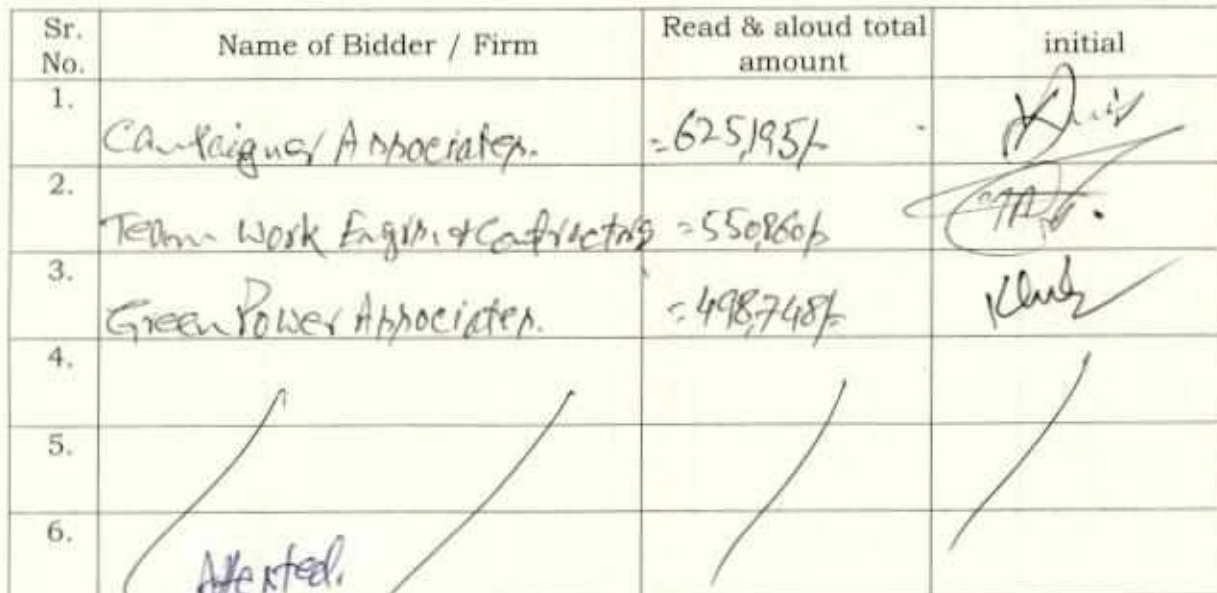 Sr. No. Name of Bidder / Firm Read & aloud total amount initial
1. Campaigner Associates. =625,195/-
2. Team Work Engin. & Contractors =550,860/-
3. Green Power Associates. =498,748/-
4.
5.
6.
Attested.